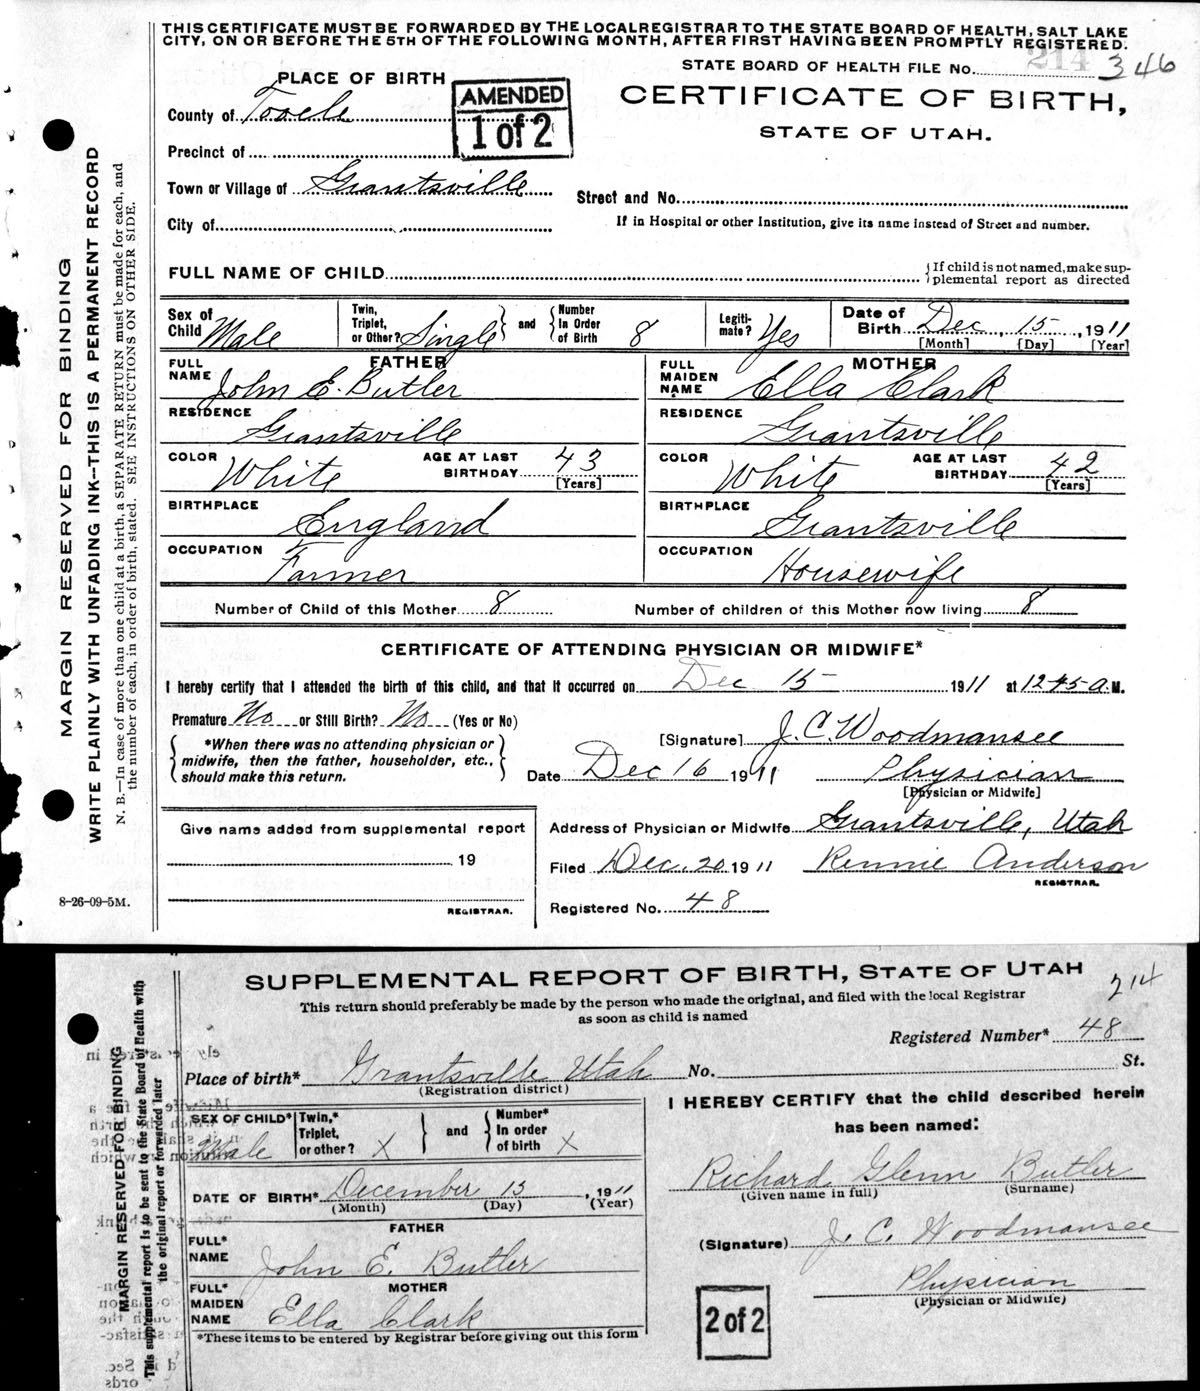 THIS CERTIFICATE MUST BE FORWARDED BY THE LOCAL REGISTRAR TO THE STATE BOARD OF HEALTH, SALT LAKE
CITY, ON OR BEFORE THE 5TH OF THE FOLLOWING MONTH, AFTER FIRST HAVING BEEN PROMPTLY REGISTERED.
STATE BOARD OF HEALTH FILE No. 214 346
PLACE OF BIRTH
AMENDED
1 of 2
CERTIFICATE OF BIRTH,
STATE OF UTAH.
County of Tooele
Precinct of
Town or Village of Grantsville
Street and No.
City of
If in Hospital or other Institution, give its name instead of Street and number.
FULL NAME OF CHILD
{If child is not named, make sup-
plemental report as directed
Sex of Child Male
Twin, Triplet, or Other? Single } and { Number In Order of Birth 8
Legiti-mate? Yes
Date of Birth Dec, 15, 1911
[Month] [Day] [Year]
FATHER
FULL NAME John E. Butler
MOTHER
FULL MAIDEN NAME Ella Clark
RESIDENCE Grantsville
RESIDENCE Grantsville
COLOR White AGE AT LAST BIRTHDAY 43 [Years]
COLOR White AGE AT LAST BIRTHDAY 42 [Years]
BIRTHPLACE England
BIRTHPLACE Grantsville
OCCUPATION Farmer
OCCUPATION Housewife
Number of Child of this Mother 8
Number of children of this Mother now living 8
CERTIFICATE OF ATTENDING PHYSICIAN OR MIDWIFE*
I hereby certify that I attended the birth of this child, and that it occurred on Dec 15 1911 at 12-45 A.M.
Premature No or Still Birth? No (Yes or No)
{*When there was no attending physician or
midwife, then the father, householder, etc.,
should make this return.}
[Signature] J. C. Woodmansee
Date Dec 16 1911 Physician
[Physician or Midwife]
Give name added from supplemental report
19
REGISTRAR.
Address of Physician or Midwife Grantsville, Utah
Filed Dec. 20 1911 Rennie Anderson
REGISTRAR.
Registered No. 48
8-26-09-5M.
MARGIN RESERVED FOR BINDING
WRITE PLAINLY WITH UNFADING INK—THIS IS A PERMANENT RECORD
N. B.—In case of more than one child at a birth, a SEPARATE RETURN must be made for each, and
the number of each, in order of birth, stated. SEE INSTRUCTIONS ON OTHER SIDE.
SUPPLEMENTAL REPORT OF BIRTH, STATE OF UTAH
214
This return should preferably be made by the person who made the original, and filed with the local Registrar
as soon as child is named
Registered Number* 48
Place of birth* Grantsville Utah No. St.
(Registration district)
SEX OF CHILD* Male
Twin,* Triplet, or other? X } and { Number* In order of birth X
DATE OF BIRTH* December 15, 1911
(Month) (Day) (Year)
FATHER
FULL* NAME John E. Butler
MOTHER
FULL* MAIDEN NAME Ella Clark
*These items to be entered by Registrar before giving out this form
I HEREBY CERTIFY that the child described herein
has been named:
Richard Glenn Butler
(Given name in full) (Surname)
(Signature) J. C. Woodmansee
Physician
(Physician or Midwife)
2 of 2
MARGIN RESERVED FOR BINDING
This supplemental report is to be sent to the State Board of Health with
the original report or forwarded later